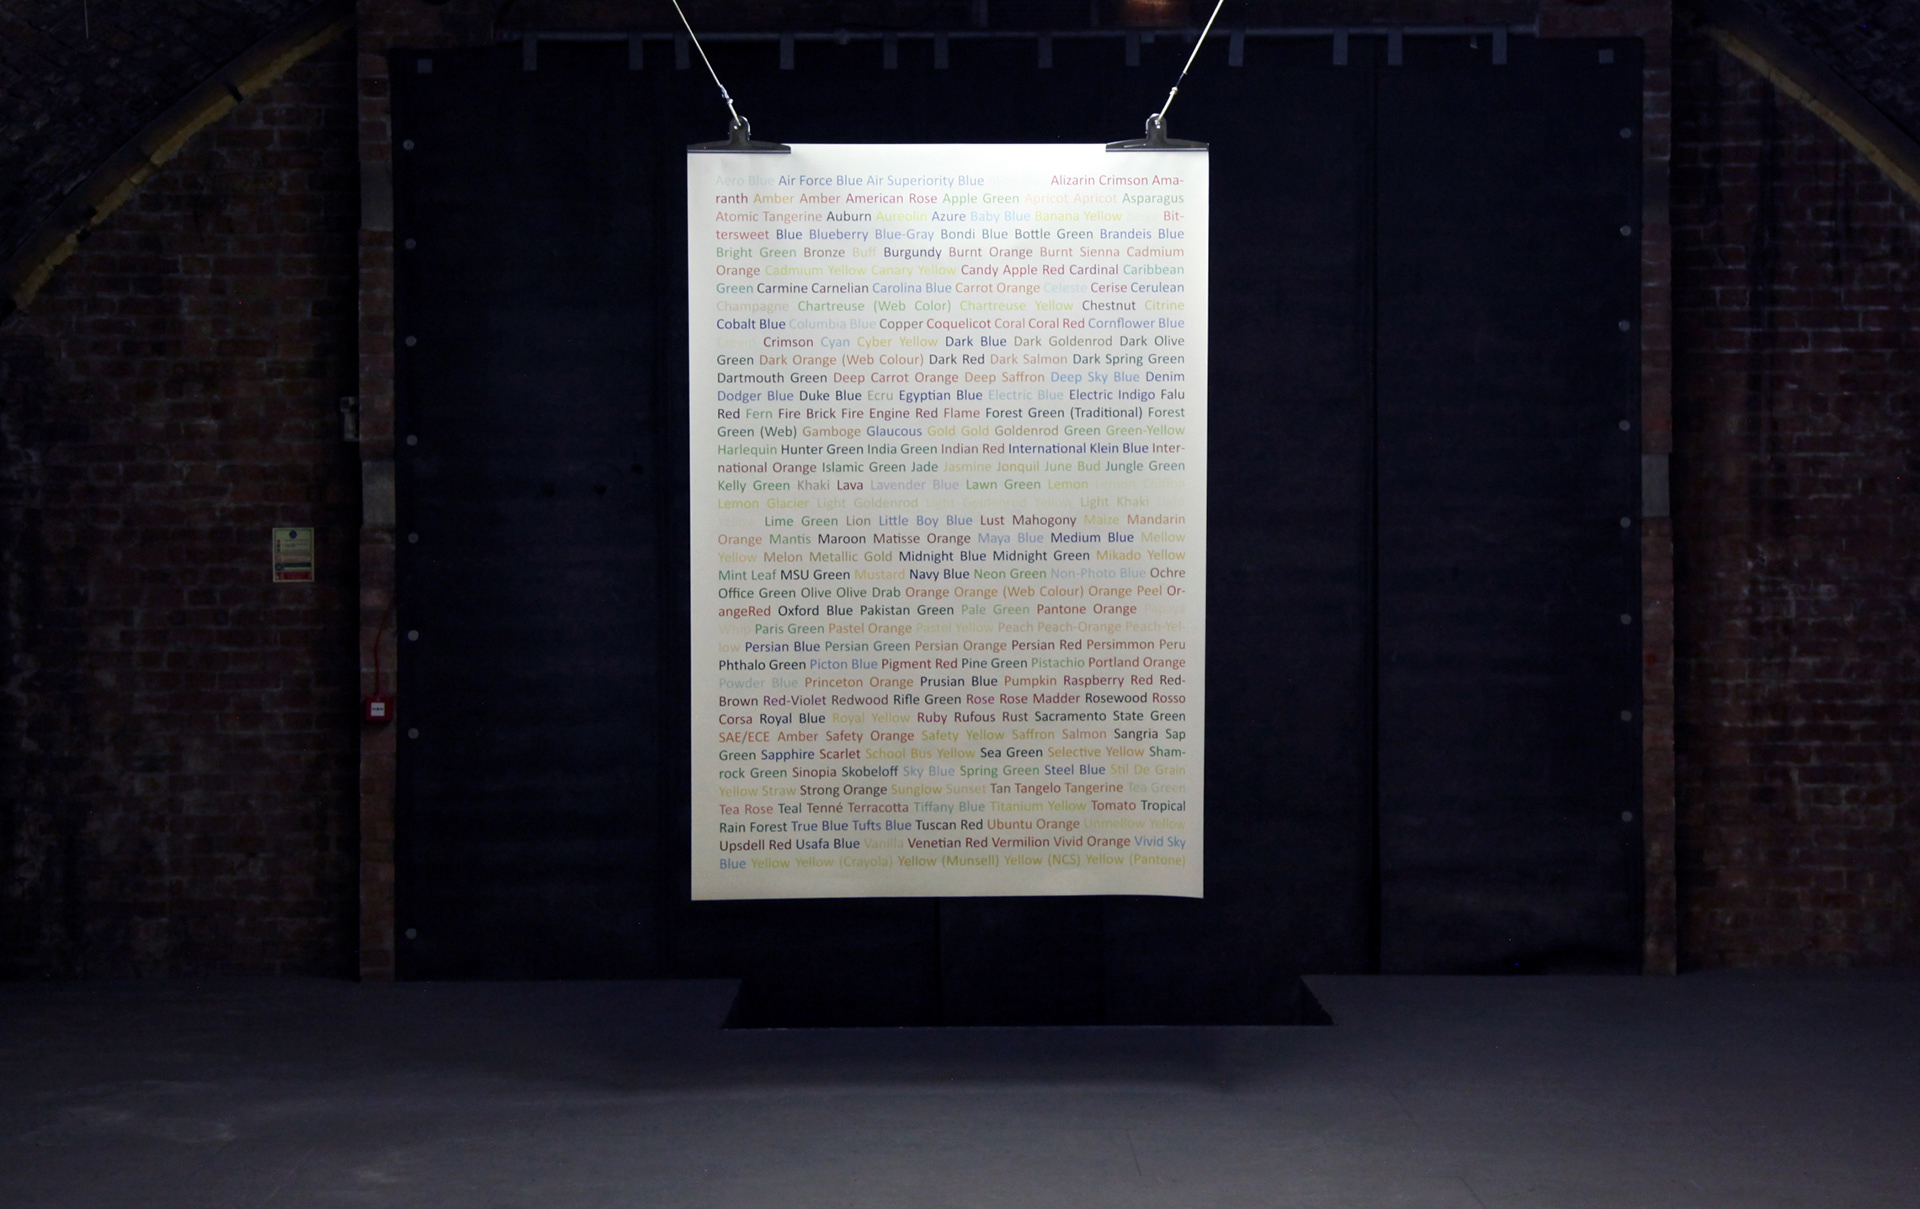 Aero Blue Air Force Blue Air Superiority Blue Alizarin Crimson Ama-
ranth Amber Amber American Rose Apple Green Apricot Apricot Asparagus
Atomic Tangerine Auburn Aureolin Azure Baby Blue Banana Yellow Bit-
tersweet Blue Blueberry Blue-Gray Bondi Blue Bottle Green Brandeis Blue
Bright Green Bronze Buff Burgundy Burnt Orange Burnt Sienna Cadmium
Orange Cadmium Yellow Canary Yellow Candy Apple Red Cardinal Caribbean
Green Carmine Carnelian Carolina Blue Carrot Orange Celeste Cerise Cerulean
Champagne Chartreuse (Web Color) Chartreuse Yellow Chestnut Citrine
Cobalt Blue Columbia Blue Copper Coquelicot Coral Coral Red Cornflower Blue
Crimson Cyan Cyber Yellow Dark Blue Dark Goldenrod Dark Olive
Green Dark Orange (Web Colour) Dark Red Dark Salmon Dark Spring Green
Dartmouth Green Deep Carrot Orange Deep Saffron Deep Sky Blue Denim
Dodger Blue Duke Blue Ecru Egyptian Blue Electric Blue Electric Indigo Falu
Red Fern Fire Brick Fire Engine Red Flame Forest Green (Traditional) Forest
Green (Web) Gamboge Glaucous Gold Gold Goldenrod Green Green-Yellow
Harlequin Hunter Green India Green Indian Red International Klein Blue Inter-
national Orange Islamic Green Jade Jasmine Jonquil June Bud Jungle Green
Kelly Green Khaki Lava Lavender Blue Lawn Green Lemon
Lemon Glacier Light Goldenrod Light Goldenrod Yellow Light Khaki
Lime Green Lion Little Boy Blue Lust Mahogony Maize Mandarin
Orange Mantis Maroon Matisse Orange Maya Blue Medium Blue Mellow
Yellow Melon Metallic Gold Midnight Blue Midnight Green Mikado Yellow
Mint Leaf MSU Green Mustard Navy Blue Neon Green Non-Photo Blue Ochre
Office Green Olive Olive Drab Orange Orange (Web Colour) Orange Peel Or-
angeRed Oxford Blue Pakistan Green Pale Green Pantone Orange Papaya
Whip Paris Green Pastel Orange Pastel Yellow Peach Peach-Orange Peach-Yel-
low Persian Blue Persian Green Persian Orange Persian Red Persimmon Peru
Phthalo Green Picton Blue Pigment Red Pine Green Pistachio Portland Orange
Powder Blue Princeton Orange Prusian Blue Pumpkin Raspberry Red Red-
Brown Red-Violet Redwood Rifle Green Rose Rose Madder Rosewood Rosso
Corsa Royal Blue Royal Yellow Ruby Rufous Rust Sacramento State Green
SAE/ECE Amber Safety Orange Safety Yellow Saffron Salmon Sangria Sap
Green Sapphire Scarlet School Bus Yellow Sea Green Selective Yellow Sham-
rock Green Sinopia Skobeloff Sky Blue Spring Green Steel Blue Stil De Grain
Yellow Straw Strong Orange Sunglow Sunset Tan Tangelo Tangerine Tea Green
Tea Rose Teal Tenné Terracotta Tiffany Blue Titanium Yellow Tomato Tropical
Rain Forest True Blue Tufts Blue Tuscan Red Ubuntu Orange Unmellow Yellow
Upsdell Red Usafa Blue Vanilla Venetian Red Vermilion Vivid Orange Vivid Sky
Blue Yellow Yellow (Crayola) Yellow (Munsell) Yellow (NCS) Yellow (Pantone)